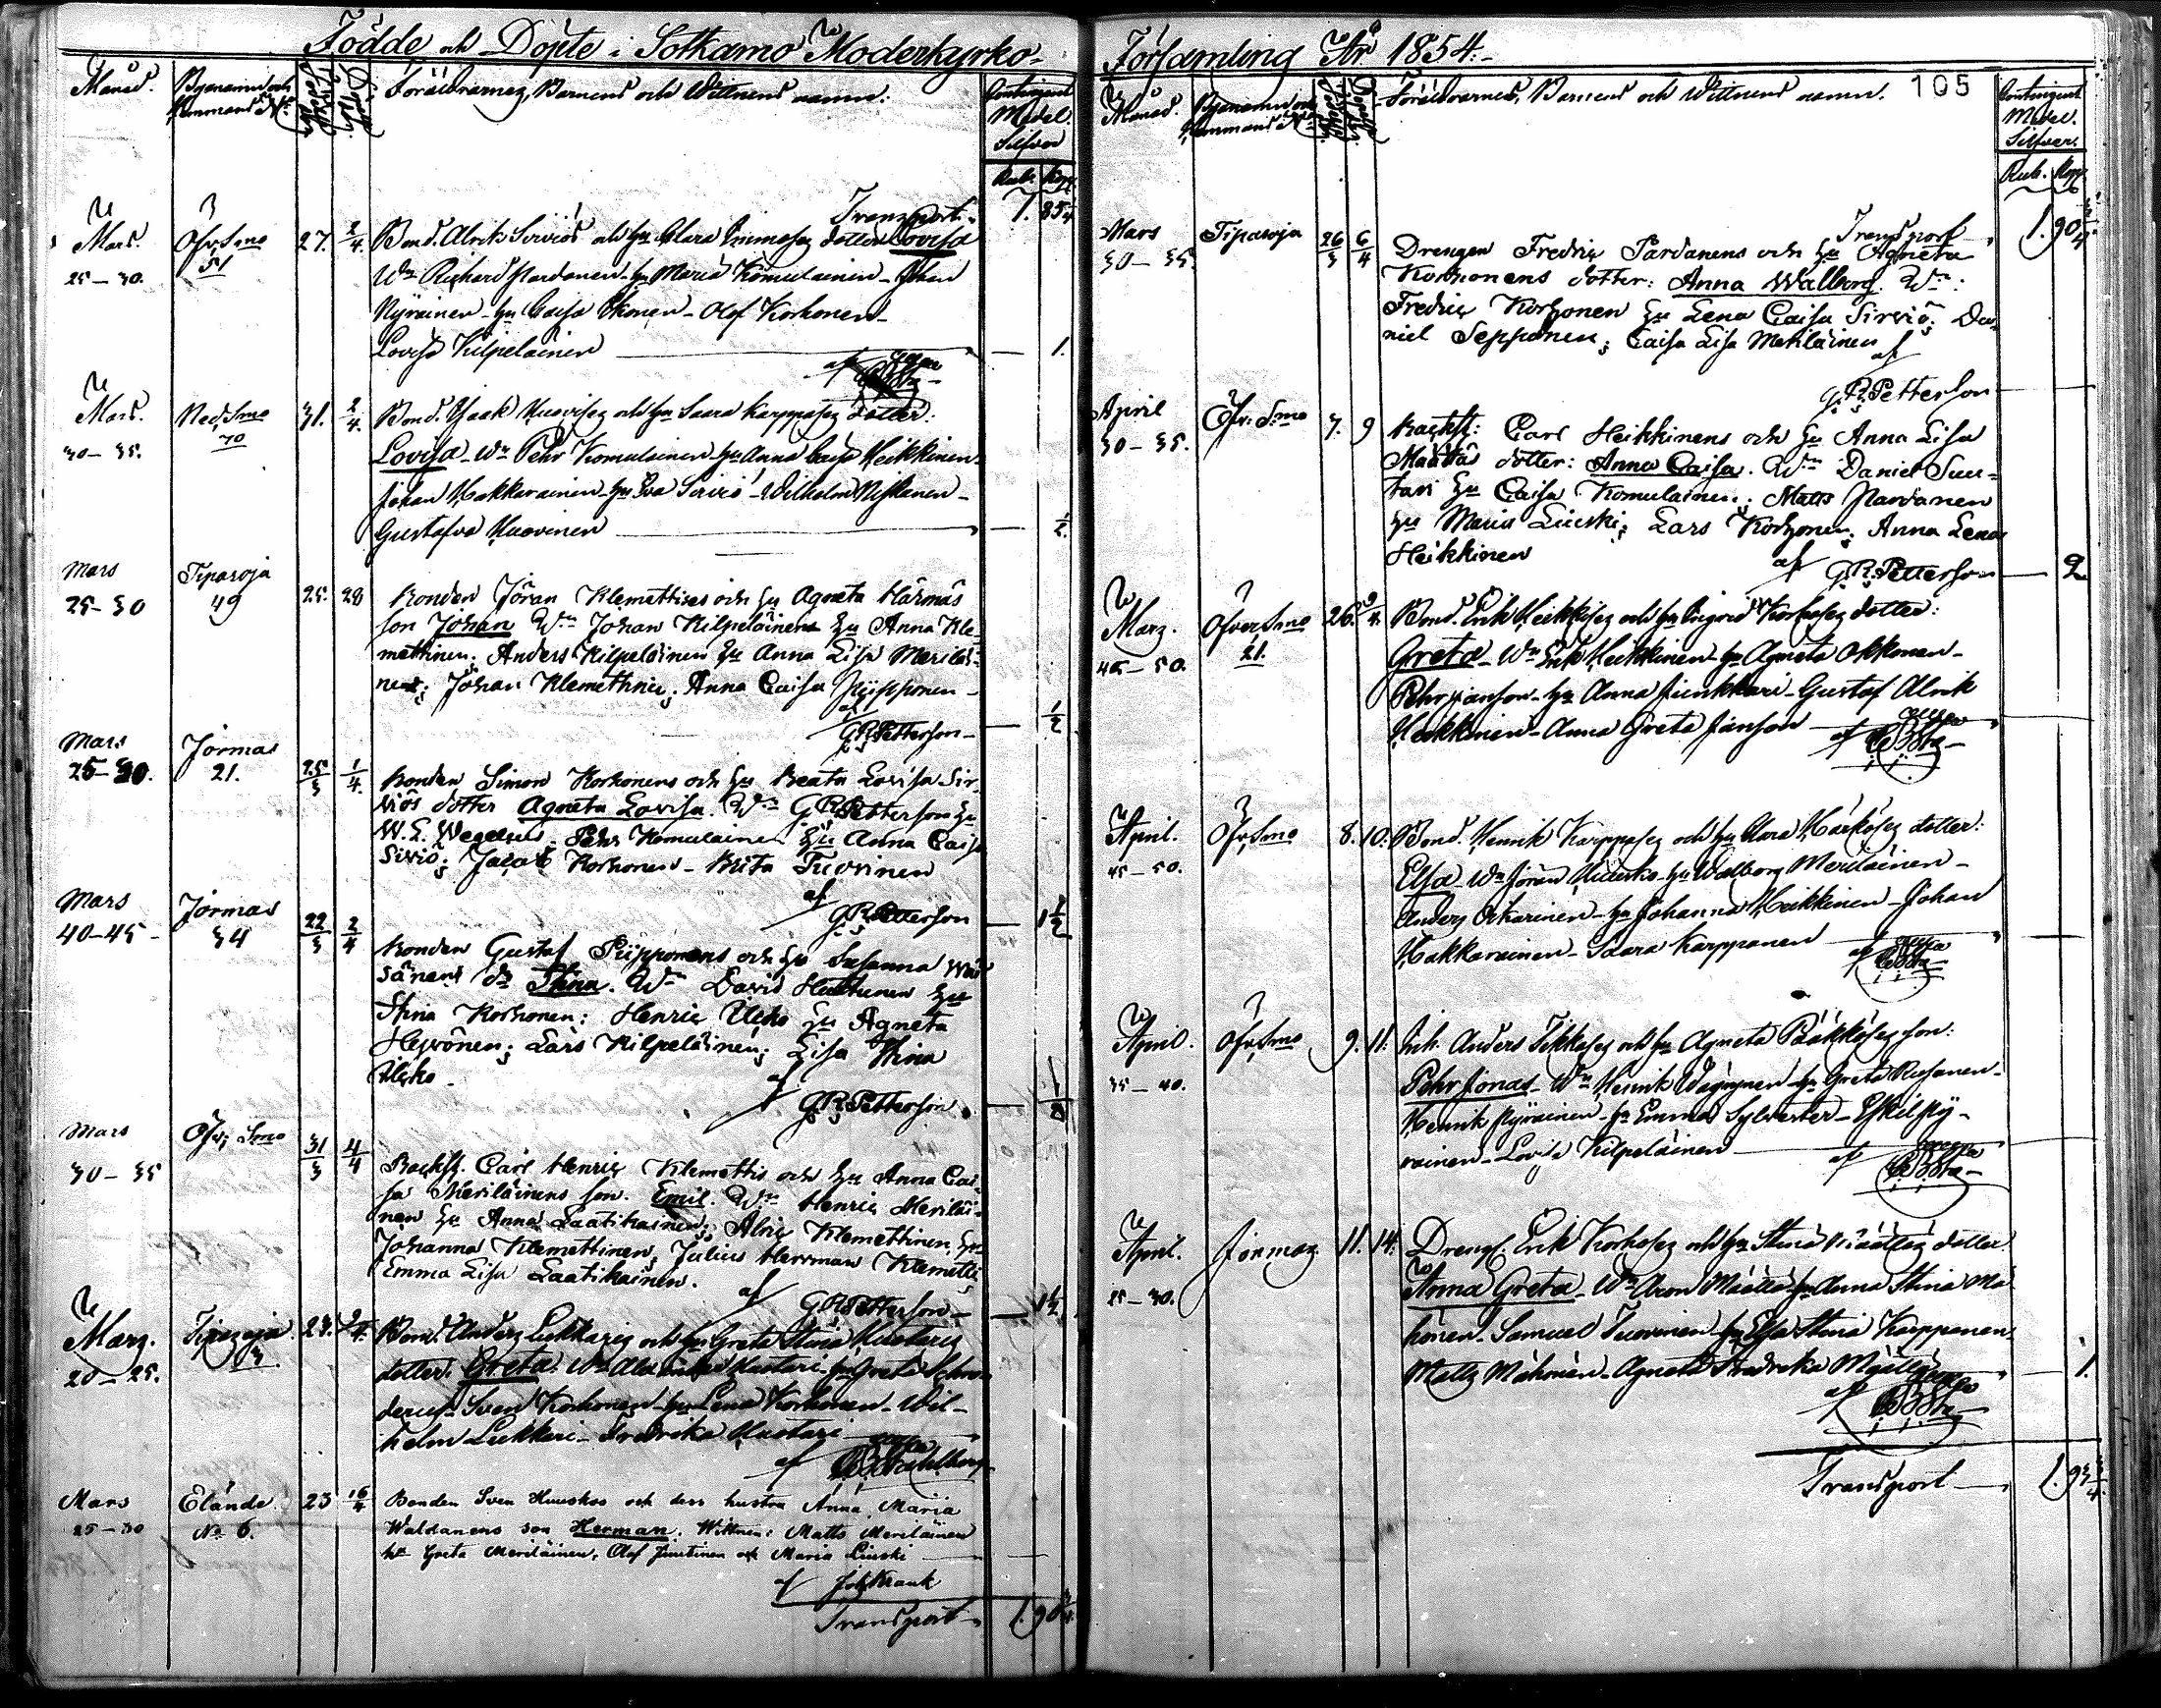 Födde och Döpte i Sotkamo Moderkyrko-
Månad.
Byanamn och
Hemmans No
Föräldrarnes, Barnens och Wittnens namn.
Contingent
Medel
Silfver
Rub. Kop.
Transport.
Mars.
25-30.
Öfv. Smo
51
27. 2/4.
Bond. Alrik Sirviös och hu Clara Immosez dotter Lovisa
Wn Richard Pardanen - hu Maria Komulainen - Johan
Nyrainen - hu Caisa Ikonen - Olof Korhonen -
Lovisa Kilpeläinen
1.
Mars.
30-35.
Ned. Smo
70
31. 2/4.
Bond. Isaak Huovisez och hu Saara Karppasez dotter:
Lovisa - Wn Pehr Komulainen - hu Anna Caisa Heikkinen -
Johan Hakkarainen - hu Eva Sirviö - Wilhelm Niskanen -
Gustafva Huovinen
1/2.
Mars
25-30
Tiparoja
49
25. 28
Bonden Jöran Klemettines och hu Agneta Härmäs
son Johan Wn Johan Kilpeläinen hu Anna Kle-
mettinen; Anders Kilpeläinen hu Anna Lisa Meriläi-
nen; Johan Klemettinen; Anna Caisa Piipponen -
af
G.R. Petterson -
1/2
Mars
25-30.
Jormas
21.
25/3 1/4.
Bonden Simon Korhonens och hu Beata Lovisa Sir-
viös dotter Agneta Lovisa. Wn G.R. Petterson hu
W.L. Wegelius; Pehr Komulainen hu Anna Caisa
Sirviö; Jacob Korhonen - Brita Tuovinen
af
G.R. Petterson
1 1/2
Mars
40-45-
Jormas
34
22/3 2/4
Bonden Gustaf Piipponens och hu Susanna Wäi-
sänens dr Stina. Wn David Huttunen hu
Stina Korhonen; Henric Ulcko hu Agneta
Heyvönen; Lars Kilpeläinen; Lisa Stina
Ulcko -
af
G.R. Petterson.
Mars
30-35
Öfv. Smo
31/3 4/4
Backst. Carl Henric Klemettis och hu Anna Cai-
sa Meriläinens son. Emil. Wn Henric Meriläi-
nen hu Anna Laatikainen; Alric Klemettinen, hu
Johanna Klemettinen, Julius Herrman Klemetti
Emma Lisa Laatikainen.
af
G.R. Petterson -
1 1/2
Mars.
20-25.
Tiparoja
3
27. 9/4.
Bond. Anders Lukkariez och hu Greta Stina Hustariez
dotter. Greta. Wn Alexander Kustari - hu Greta Schro-
derus - Sven Korhonen - hu Lena Korhonen - Wil-
helm Lukkari - Fredrika Hustari
af
Mars
25-30
Elände
No 6.
23 16/4
Bonden Sven Huuskos och dess hustru Anna Maria
Waldanens son Herman. Wittnen: Matts Meriläinen
hu Greta Meriläinen, Olof Juntinen och Maria Liuski
af Joh. Krank
Transport 1. 90 3/4
Församling År 1854.
105
Månad.
Byanamn och
Hemmans No
Föräldrarnes, Barnens och Wittnens namn.
Contingent
Medel.
Silfver.
Rub. Kop.
Transport 1. 90 3/4
Mars
30-35.
Tiparoja
26/3 6/4
Drengen Fredric Pardanens och hu Agneta
Korhonens dotter: Anna Walborg. Wn:
Fredric Korhonen hu Lena Caisa Sirviö; Da-
niel Sepponen; Caisa Lisa Meriläinen
af
G.R. Petterson
April
30-35.
Öfv. Smo
7. 9
Backst: Carl Heikkinens och hu Anna Lisa
Määttäs dotter: Anna Caisa. Wn Daniel Suu-
tari hu Caisa Komulainen; Matts Pardanen
hu Maria Liuski; Lars Korhonen; Anna Lena
Heikkinen
af
G.R. Petterson
2
Mars.
45-50.
Öfver Smo
21.
26. 9/4.
Bond. Erik Heikkisez och hu Ingrid Korhosez dotter:
Greta - Wn Erik Heikkinen - hu Agneta Okkonen -
Pehr Janson - hu Anna Junkkari - Gustaf Alrik
Heikkinen - Anna Greta Janson
af
April.
45-50.
Öfv. Smo
8. 10.
Bond. Henrik Karppasez och hu Clara Härkösez dotter:
Elsa - Wn Jöran Huusko - hu Walborg Meriläinen -
Anders Oikarinen - hu Johanna Heikkinen - Johan
Hakkarainen - Saara Karppanen
af
April.
35-40.
Öfv. Smo
9. 11.
Inh. Anders Tikkasez och hu Agneta Pääkkösez son:
Pehr Jonas - Wn Henrik Wäyrynen - hu Greta Rusanen -
Henrik Nyrainen - hu Emma Sylvester - Eskil Ny-
rainen - Lovisa Kilpeläinen
af
April.
25-30.
Jormaz
11. 14.
Drengs. Erik Korhosez och hu Stina Määttäz dotter
Anna Greta - Wn Aron Määttä - hu Anna Stina Mä-
hönen - Samuel Tuovinen - hu Elsa Stina Karppanen
Matts Mähönen - Agneta Fredrika Määttä
1.
af
Transport 1. 93 3/4.